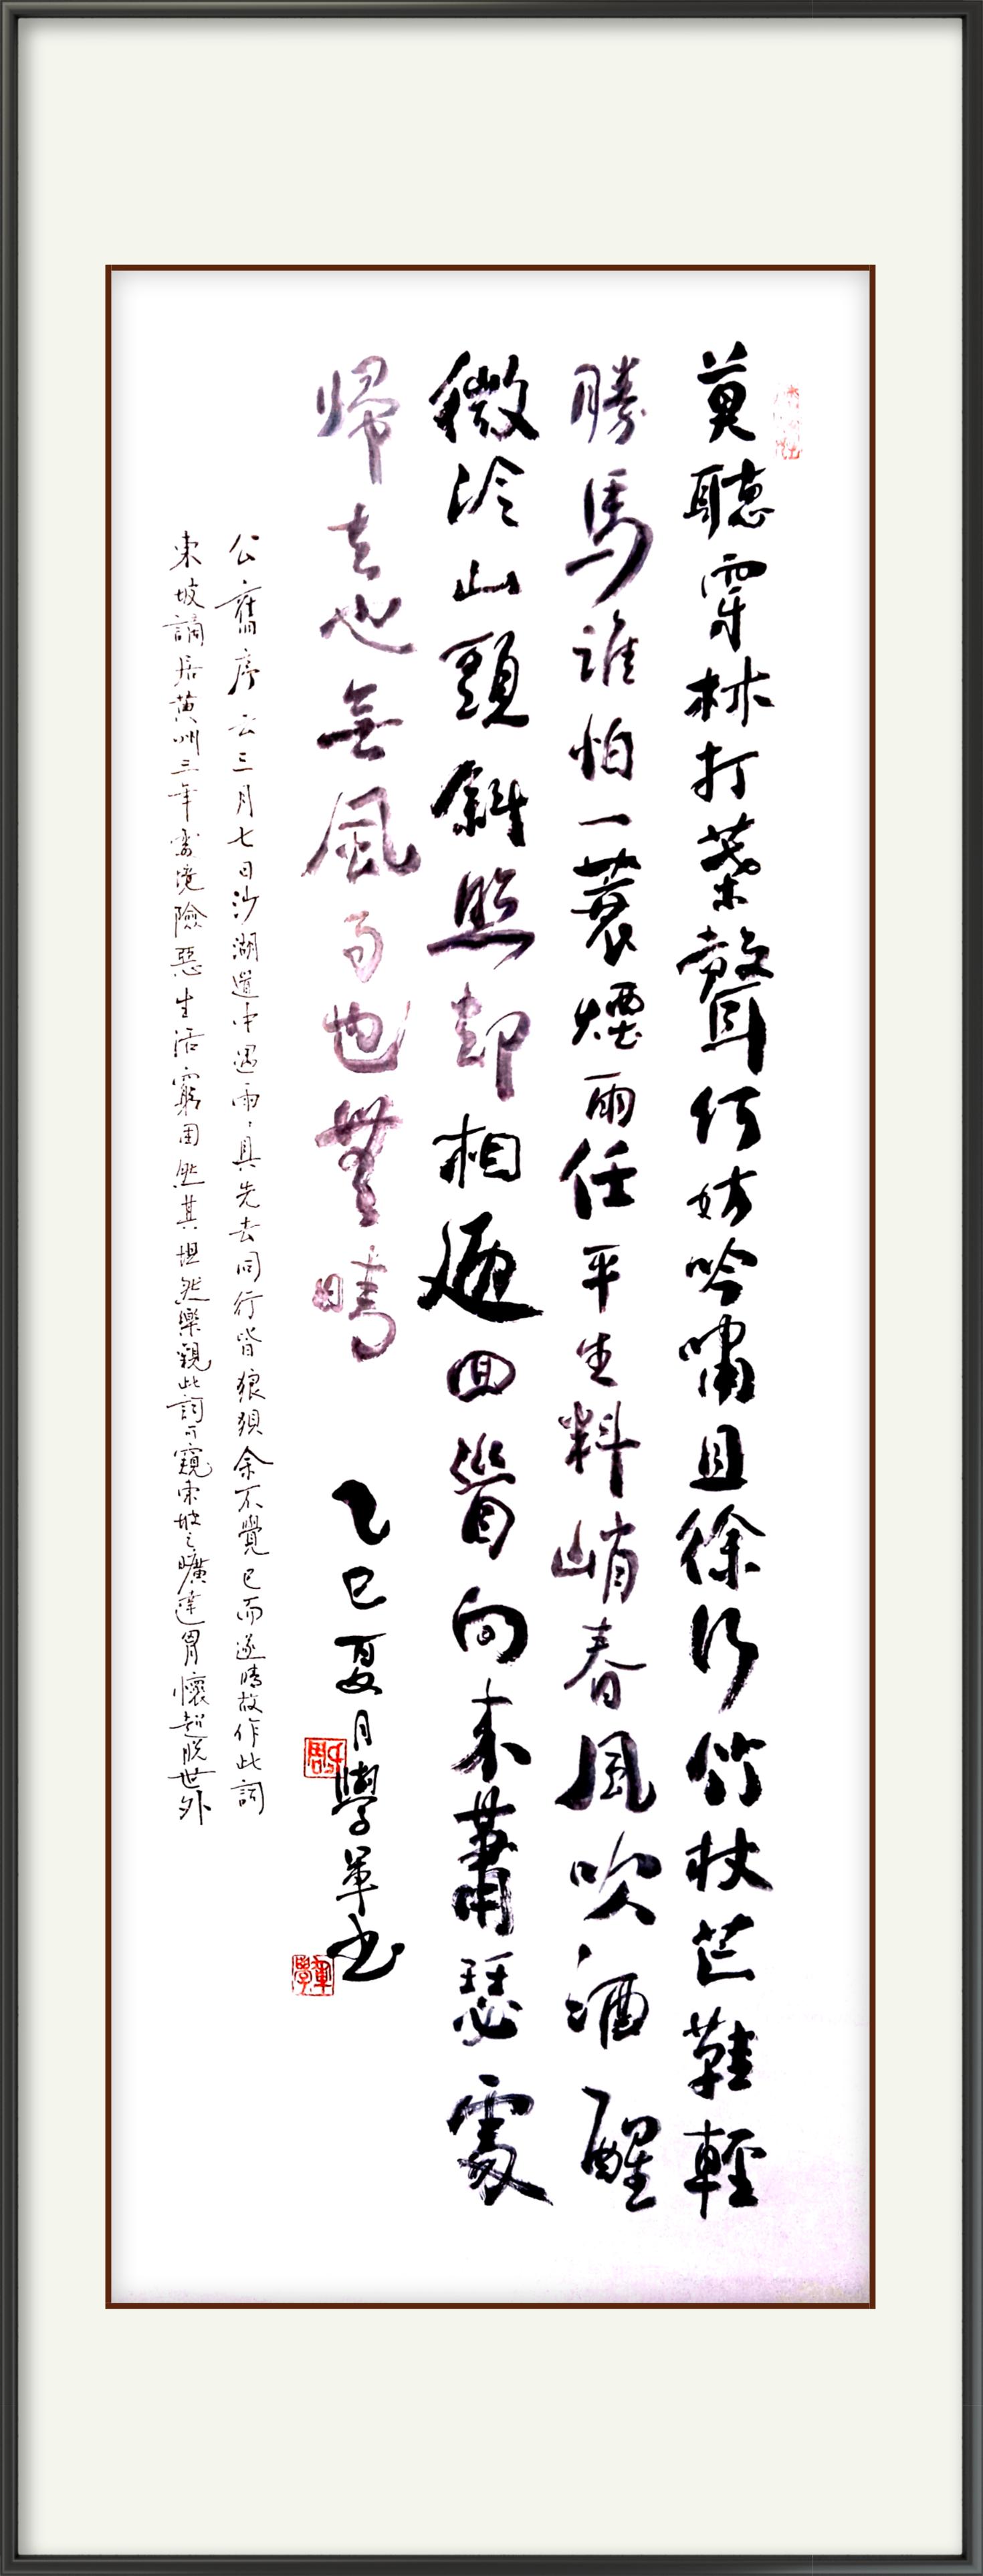 莫聽穿林打葉聲何妨吟嘯且徐行竹杖芒鞋輕
勝馬誰怕一蓑煙雨任平生料峭春風吹酒醒
微冷山頭斜照却相迎回首向來蕭瑟處
歸去也無風雨也無晴
乙巳夏月學軍書
公舊序云三月七日沙湖道中遇雨雨具先去同行皆狼狽余不覺已而遂晴故作此詞
東坡謫居黃州三年處境險惡生活窮困然其坦然樂觀此詞可窺東坡之曠達胃懷超脫世外